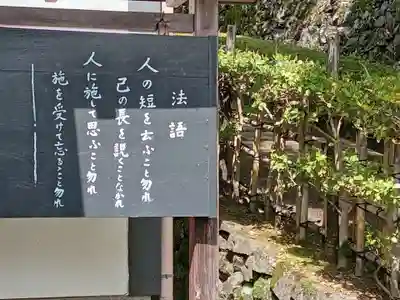 法語
人の短を云ふこと勿れ
己の長を説くことなかれ
人に施して思ふこと勿れ
施を受けて忘るること勿れ